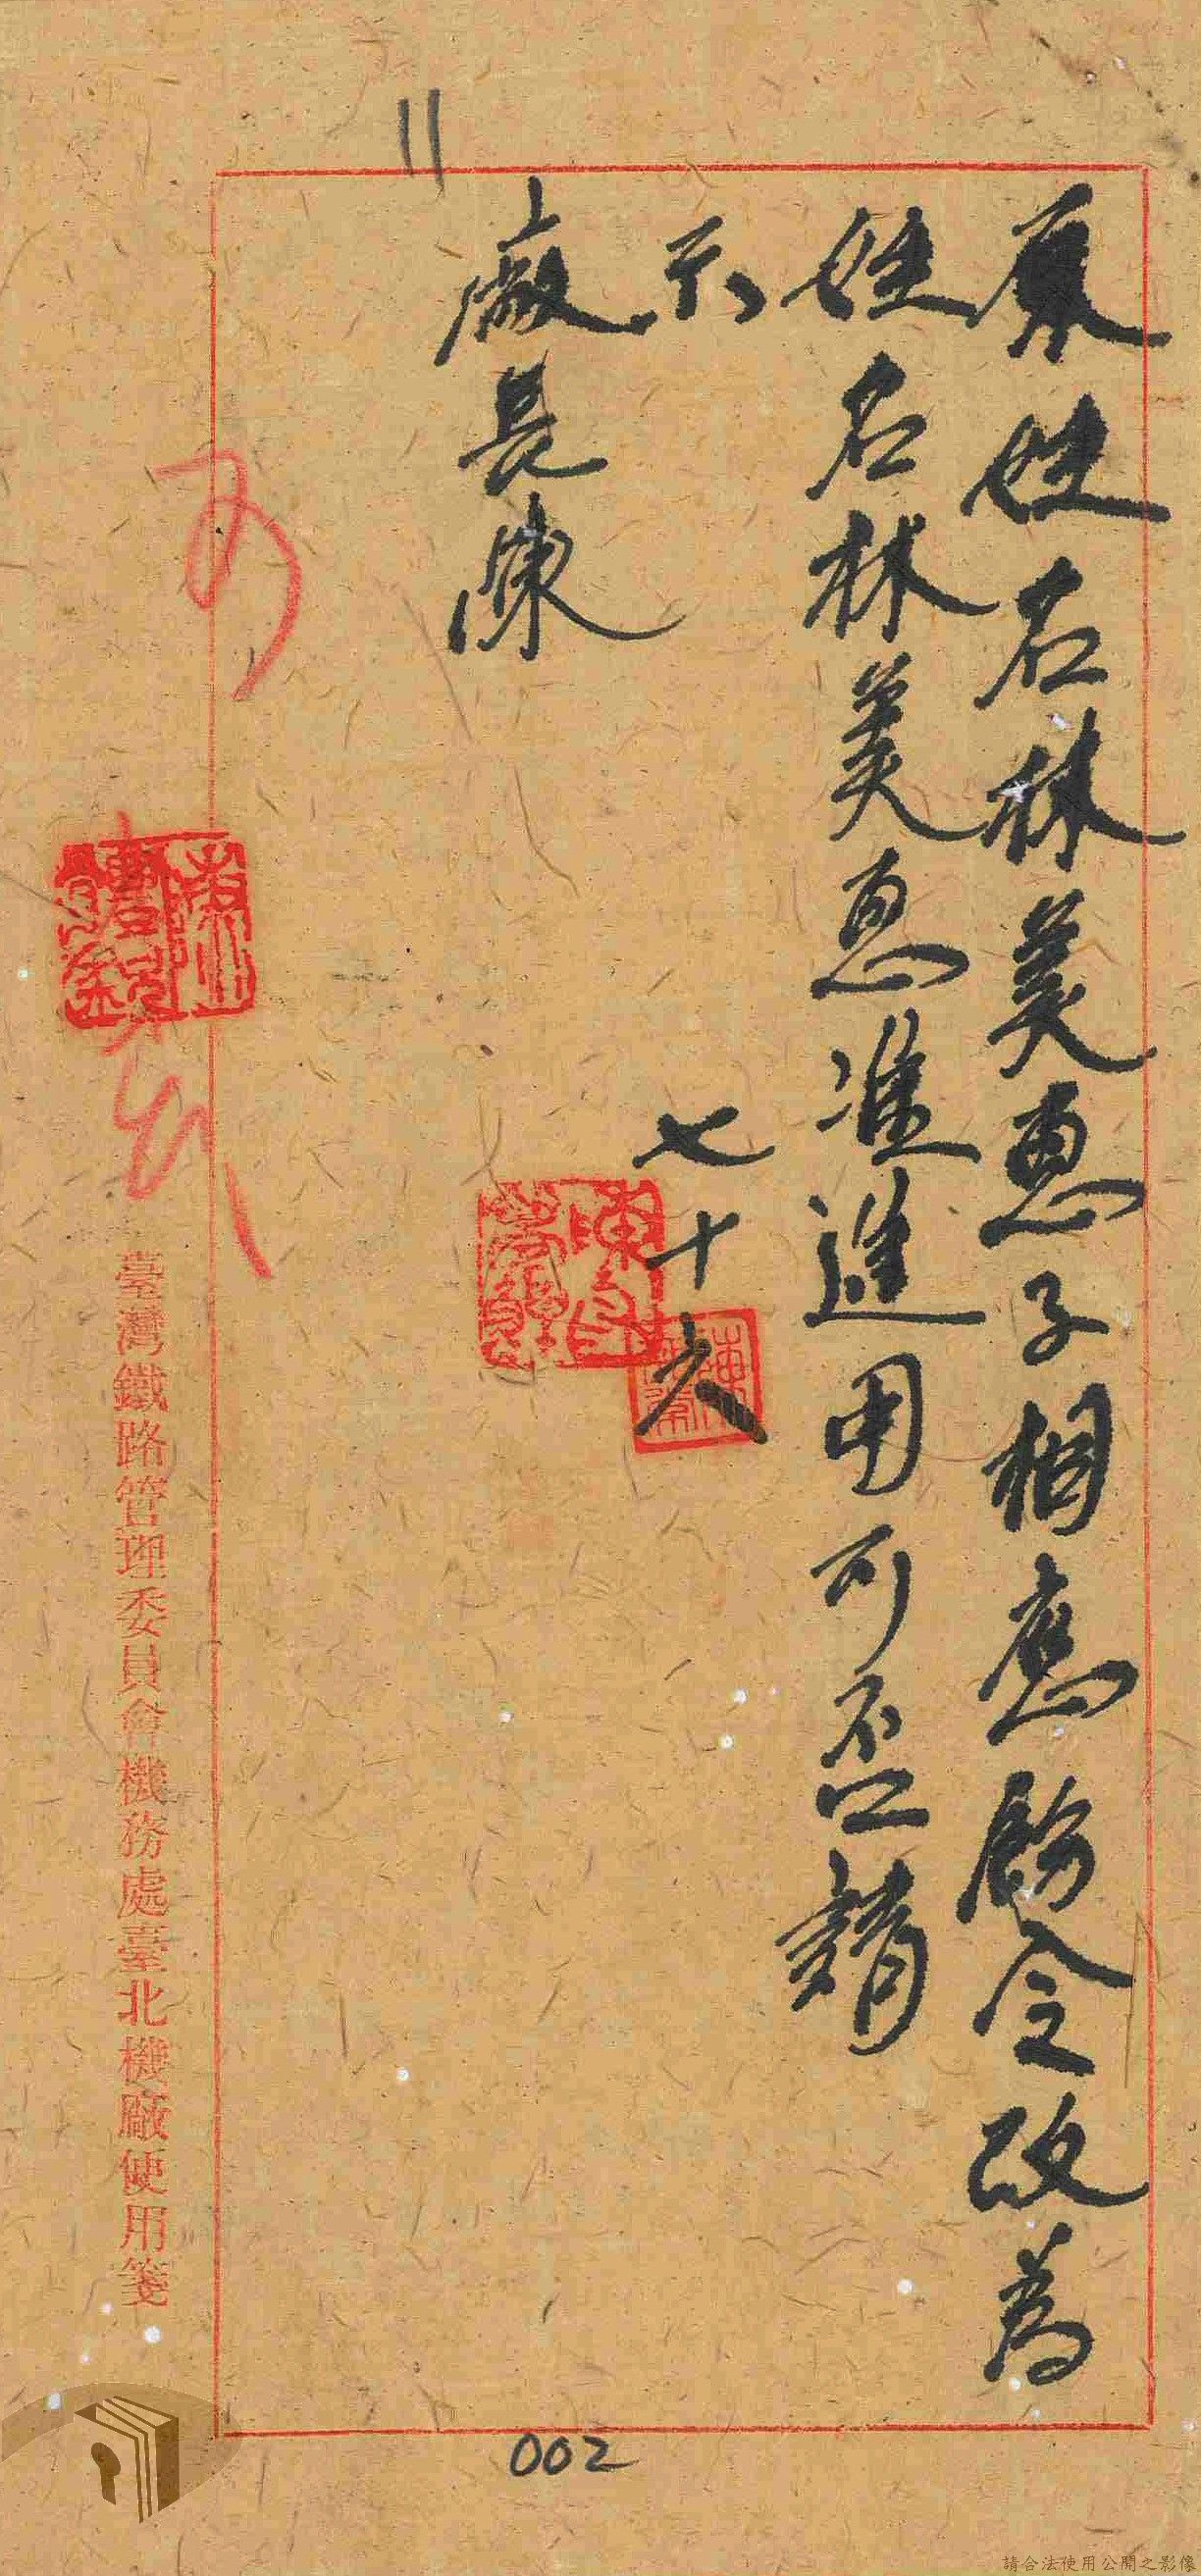 原姓名林美惠子相應飭令改為
姓名林美惠准進用可否請
示
七十六
廠長陳
可
臺灣鐵路管理委員會機務處臺北機廠使用箋
002
請合法使用公開之影像